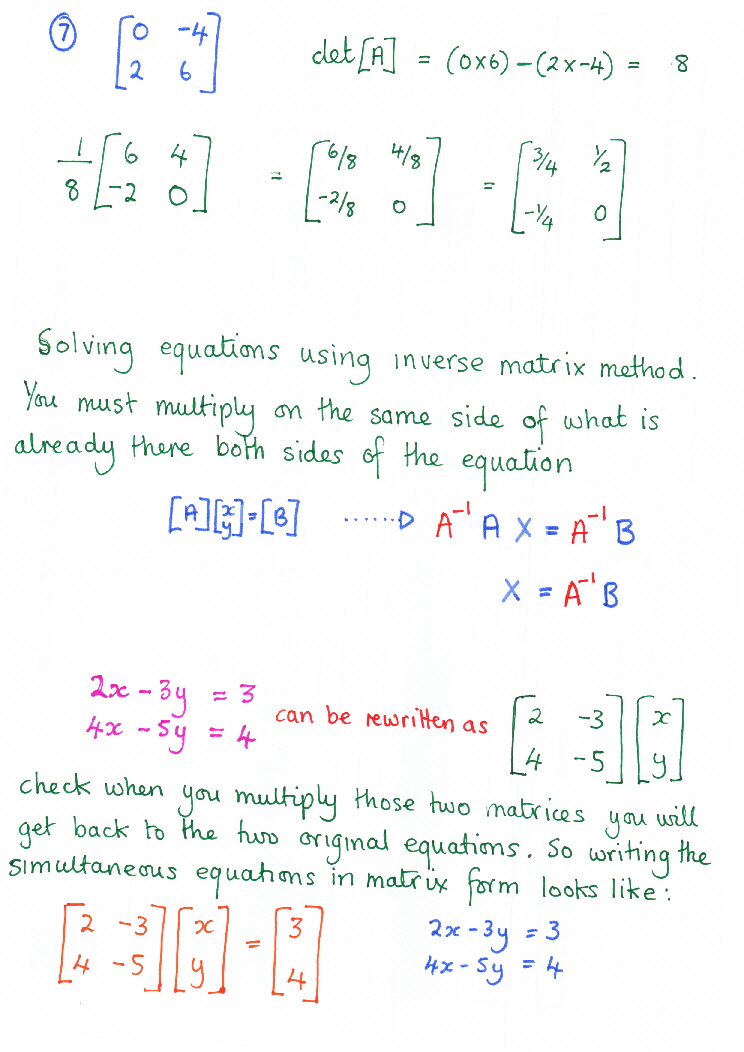 ⑦ [0 -4; 2 6] det[A] = (0x6)-(2x-4) = 8
1/8 [6 4; -2 0] = [6/8 4/8; -2/8 0] = [3/4 1/2; -1/4 0]
Solving equations using inverse matrix method.
You must multiply on the same side of what is
already there both sides of the equation
[A][x; y]=[B] ......▷ A⁻¹ A X = A⁻¹ B
X = A⁻¹ B
2x - 3y = 3
4x - 5y = 4
can be rewritten as [2 -3; 4 -5][x; y]
check when you multiply those two matrices you will
get back to the two original equations. So writing the
simultaneous equations in matrix form looks like:
[2 -3; 4 -5][x; y] = [3; 4]
2x - 3y = 3
4x - 5y = 4